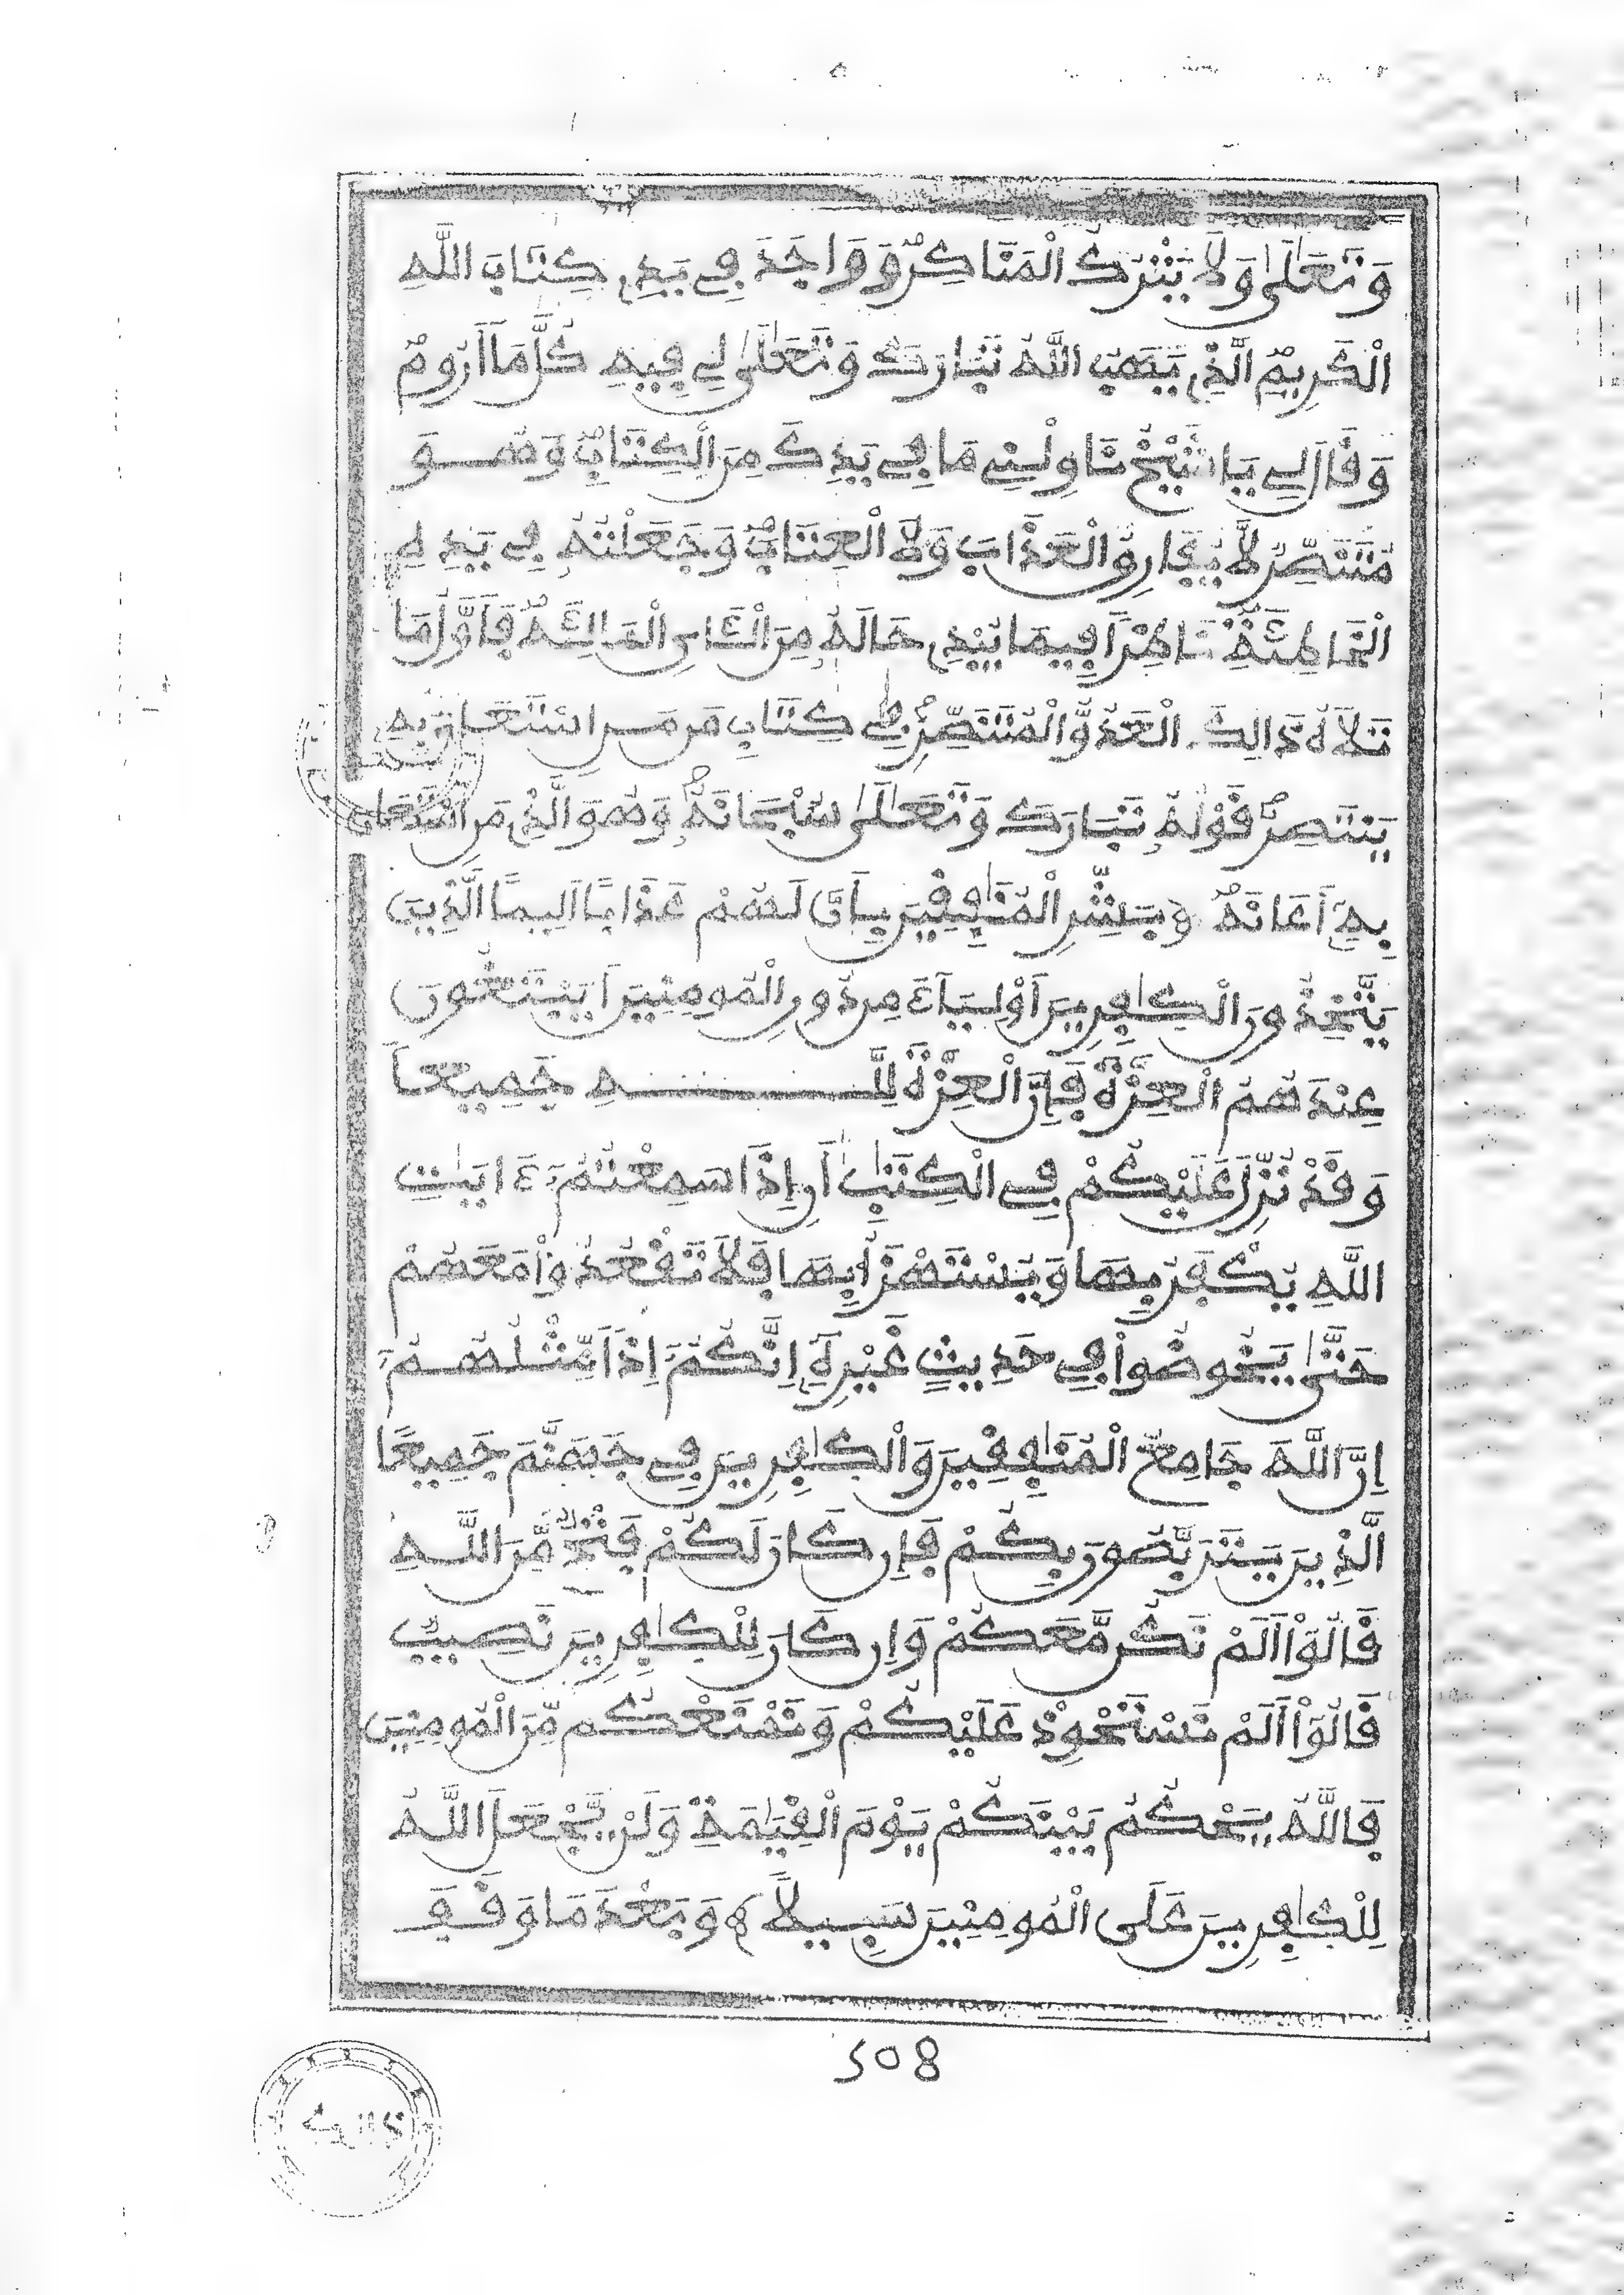 وَتَعَلَىٰ وَلَا يَتْرُكُ الْمَنَاكِرُ وَوَاجَدَ فِي يَدِي كِتَابَ اللَّهِ
الْكَرِيمُ الَّذِي يَهَبُ اللَّهُ تَبَارَكَ وَتَعَلَىٰ لِي فِيهِ كُلَّ مَا أَرُومُ
وَقَالَ لِي يَا شَيْخُ نَاوِلْنِي مَا فِي يَدِكَ مِنَ الْكِتَابِ وَهُوَ
مُتَنَصِّرٌ لَّا يُفَارِقُ الْعَذَابَ وَلَا الْعِتَابُ وَجَعَلْتُهُ فِي يَدِهِ
الْخَاطِئَةِ نَاظِرًا فِيمَا يُبْدِي حَالَهُ مِنَ الْكَائِنِ الْمَالِئَةِ فَأَوَّلُ مَا
تَلَاهُ ذَالِكَ الْعَدُوُّ الْمُتَنَصِّرُ فِي كِتَابِ مَن مَنِ اسْتَعَانَ بِهِ
يَنتَصِرُ قَوْلُهُ تَبَارَكَ وَتَعَلَىٰ سُبْحَانَهُ وَهُوَ الَّذِي مَنِ اسْتَعَانَ
بِهِ أَعَانَهُ بَشِّرِ الْمُنَٰفِقِينَ بِأَنَّ لَهُمْ عَذَابًا أَلِيمًا الَّذِينَ
يَتَّخِذُونَ الْكَٰفِرِينَ أَوْلِيَاءَ مِن دُونِ الْمُومِنِينَ أَيَبْتَغُونَ
عِندَهُمُ الْعِزَّةَ فَإِنَّ الْعِزَّةَ لِلَّهِ جَمِيعاً
وَقَدْ نُزِّلَ عَلَيْكُمْ فِي الْكِتَٰبِ أَنِ اِذَا سَمِعْتُمُ ءَايَٰتِ
اللَّهِ يُكْفَرُ بِهَا وَيُسْتَهْزَأُ بِهَا فَلَا تَقْعُدُواْ مَعَهُمْ
حَتَّىٰ يَخُوضُواْ فِي حَدِيثٍ غَيْرِهِ إِنَّكُمُ إِذًا مِّثْلُهُمُ
إِنَّ اللَّهَ جَامِعُ الْمُنَٰفِقِينَ وَالْكَٰفِرِينَ فِي جَهَنَّمَ جَمِيعًا
الَّذِينَ يَتَرَبَّصُونَ بِكُمْ فَإِن كَانَ لَكُمْ فَتْحٌ مِّنَ اللَّهِ
قَالُواْ أَلَمْ نَكُن مَّعَكُمْ وَإِن كَانَ لِلْكَٰفِرِينَ نَصِيبٌ
قَالُواْ أَلَمْ نَسْتَحْوِذْ عَلَيْكُمْ وَنَمْنَعْكُم مِّنَ الْمُومِنِينَ
فَاللَّهُ يَحْكُمُ بَيْنَكُمْ يَوْمَ الْقِيَٰمَةِ وَلَنْ يَّجْعَلَ اللَّهُ
لِلْكَٰفِرِينَ عَلَى الْمُومِنِينَ سَبِيلاً وَبَعْدَ مَا وَقَفَ
508